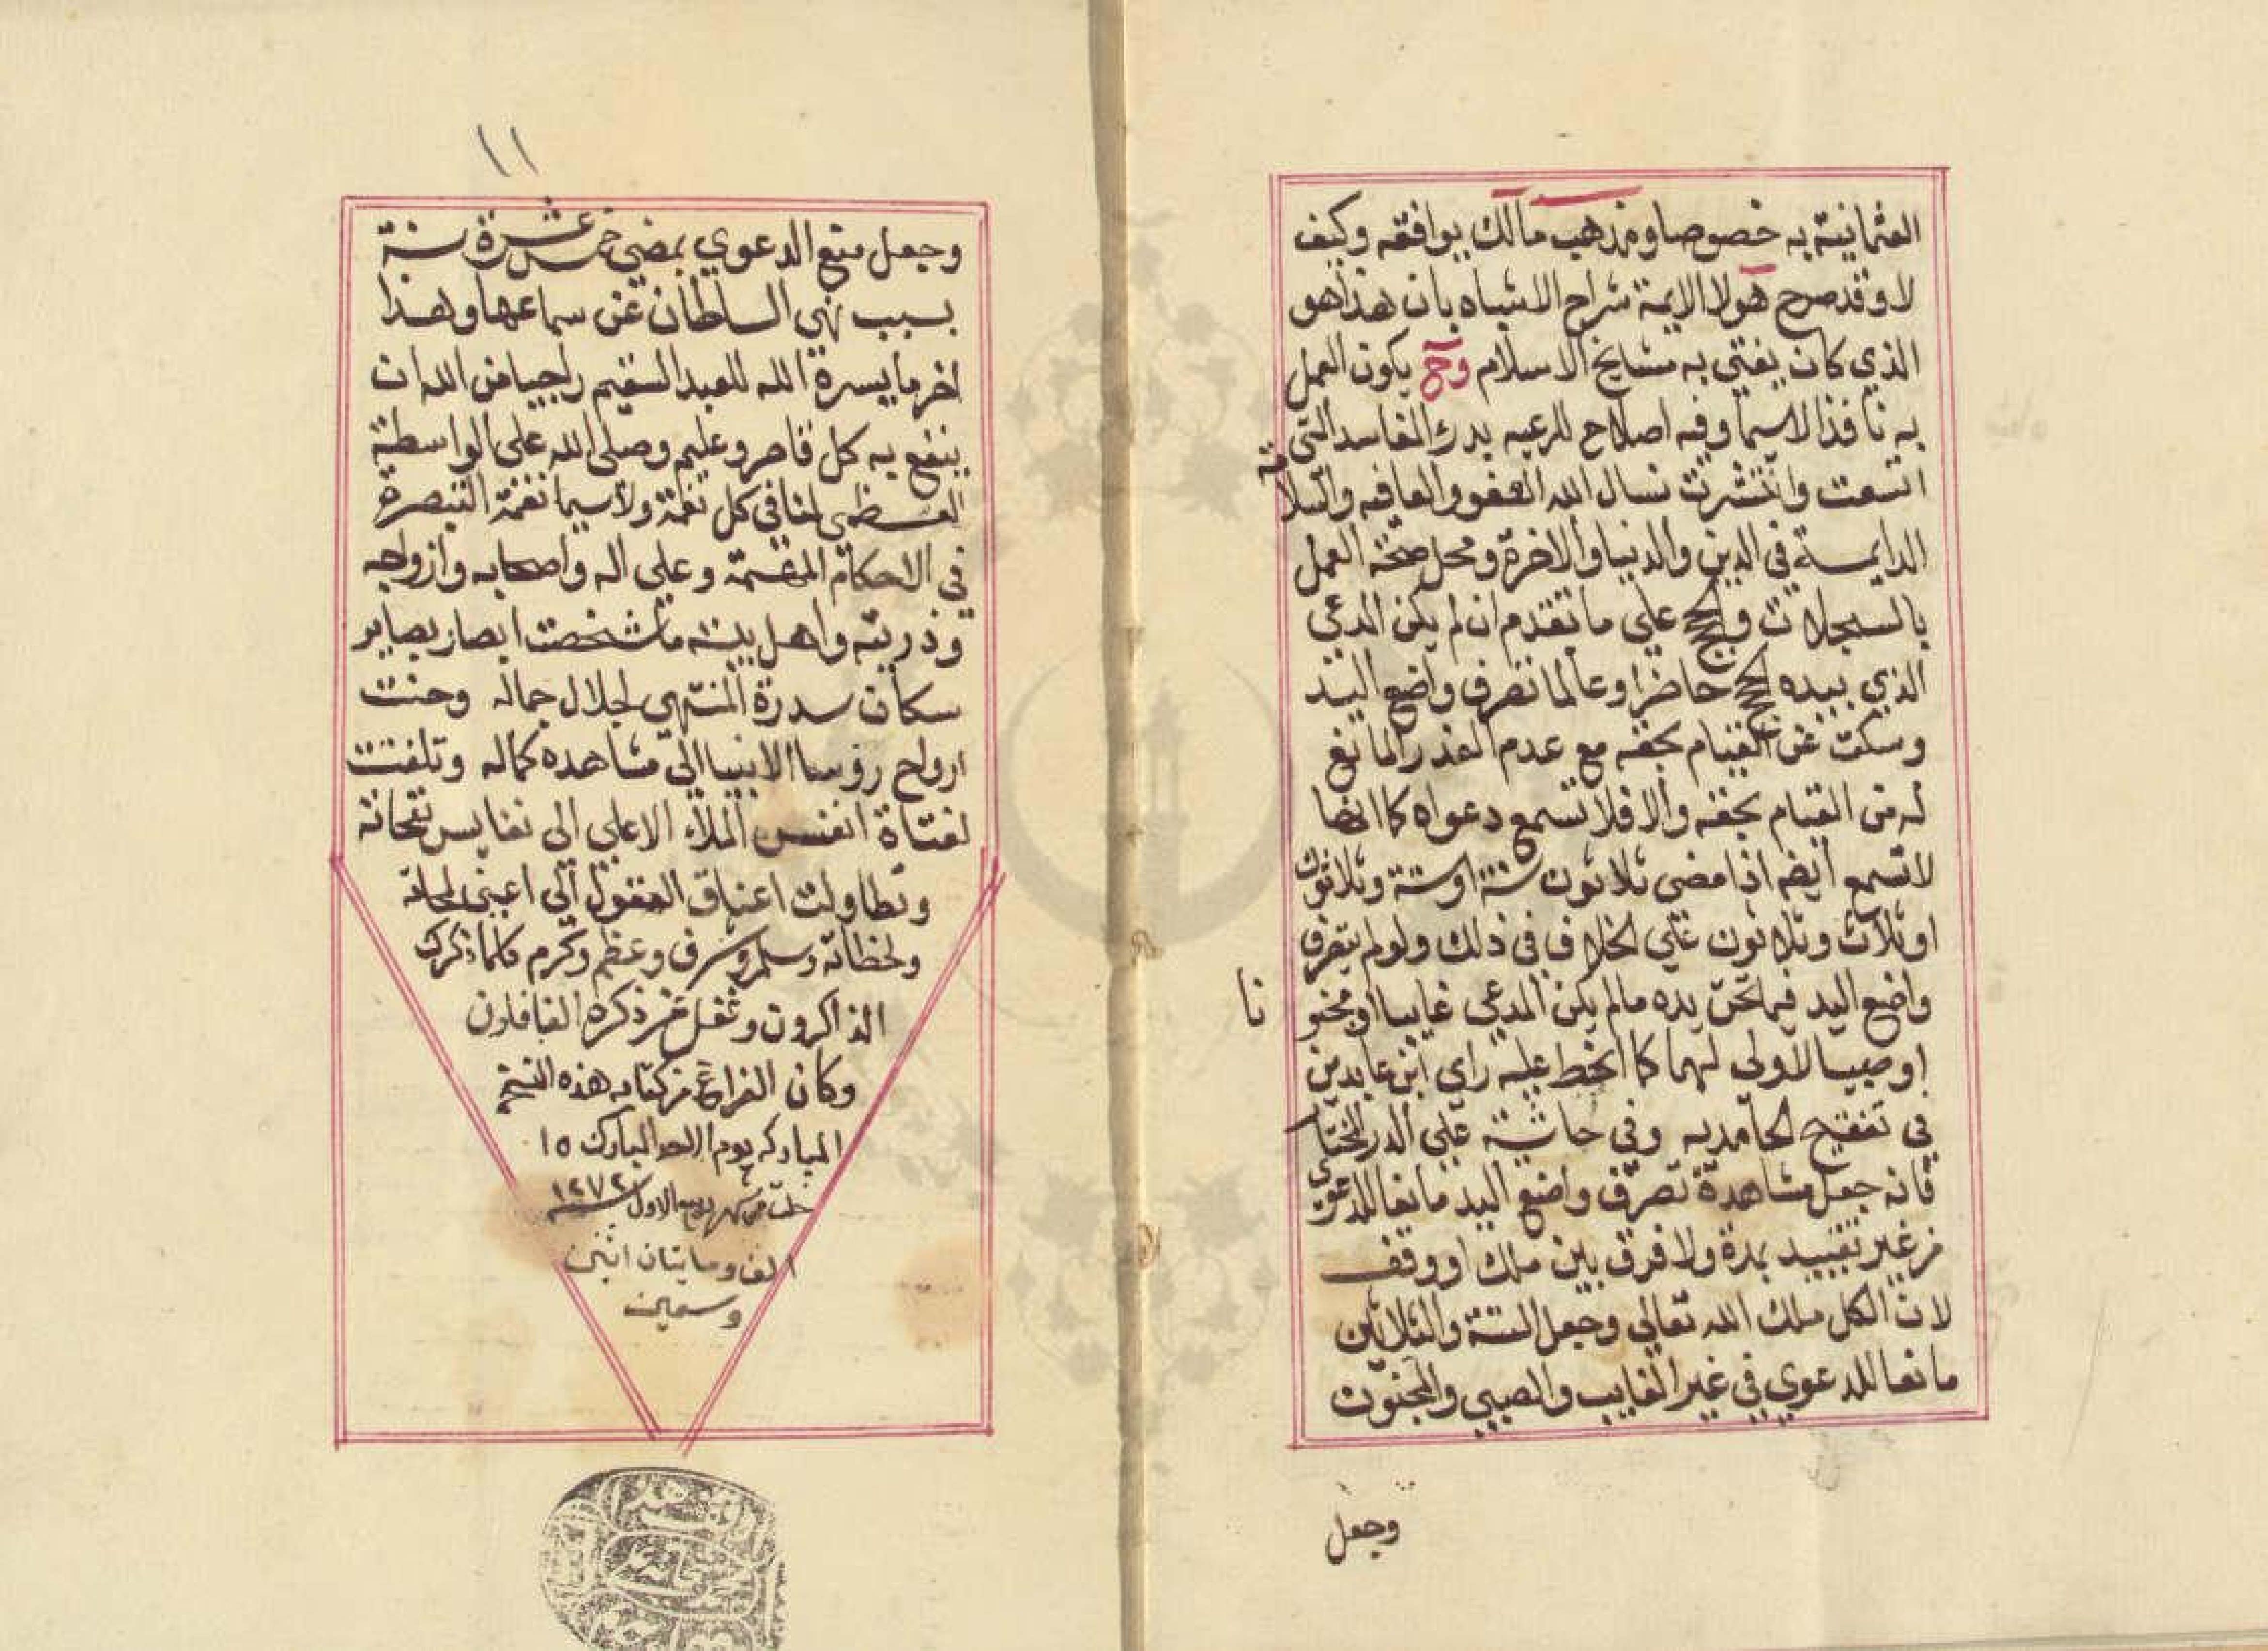 العثمانية به خصوصا ومذهب مالك يوافقه وكيف
لا وقد صرح هولا الايمة شراح الاشباه بان هذا هو
الذي كان يفتي به مشايخ الاسلام وح يكون العمل
به نافذا لاسيما وفيه اصلاح للرعيه بدرء المفاسد التي
اتسعت وانتشرت نسال الله العفو والعافيه والسلامة
الدايمة في الدين والدنيا والاخرة ومحل صحة العمل
بالسجلات والحجج على ما تقدم ان لم يكن المدعي
الذي بيده الحجج حاضرا وعالما تصرف واضع اليد
وسكت عن القيام بحقه مع عدم العذر المانع
له من القيام بحقه والا فلا تسمع دعواه كما انها
لا تسمع ايضه اذا مضى ثلاثون سنة او ستة وثلاثون
او ثلاث وثلاثون علي الخلاف في ذلك ولو لم يتصرف
واضع اليد فيما تحت يده مالم يكن المدعي غايبا او مجنو
نا
او صبيا لا ولى لهما كما انحط عليه راي ابن عابدين
في تنقيح الحامديه وفي حاشية علي الدر المختار
فانه جعل مشاهدة تصرف واضع اليد مانعا للدعوى
من غير تقييد بمدة ولا فرق بين ملك او وقف
لان الكل ملك الله تعالي وجعل الستة والثلاثين
مانعا للدعوي في غير الغايب والصبي والمجنون
وجعل
١١
وجعل منع الدعوي بمضي خمس عشرة سنة
بسبب نهي السلطان عن سماعها وهذا
اخر ما يسرة الله للعبد السقيم راجيا من الله ان
ينفع به كل قاصر وعليم وصلى الله على الواسطة
العظمى لنا في كل نعمة ولا سيما نعمة التبصرة
في الاحكام المعتمة وعلى اله واصحابه وازواجه
وذريته واهل بيته ما شخصت ابصار بصاير
سكان سدرة المنتهي لجلال جماله وحنت
ارواح روسا الانبيا الي مشاهده كماله وتلفتت
لفتاة انفس الملاء الاعلي الى نفايس نفحاته
وتطاولت اعناق العقول الي اعيني لمحاته
ولحظاته وسلم وشرف وعظم وكرم كلما ذكرك
الذاكرون وغفل عن ذكره الغافلون
وكان الفراغ من كتابه هذه النسخ
المباركه يوم الاحد المبارك ١٥
خلت من شهر ربيع الاول سنة ١٢٧٢
الف ومايتان اثنين
وسبعين